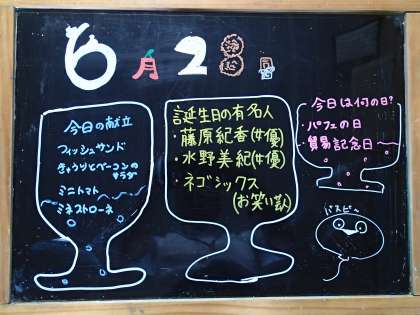 6月28日
今日の献立
フィッシュサンド
きゅうりとベーコンの
サラダ
ミニトマト
ミネストローネ
誕生日の有名人
・藤原紀香(女優)
・水野美紀(女優)
・ネゴシックス
(お笑い芸人)
今日は何の日?
・パフェの日
・貿易記念日~